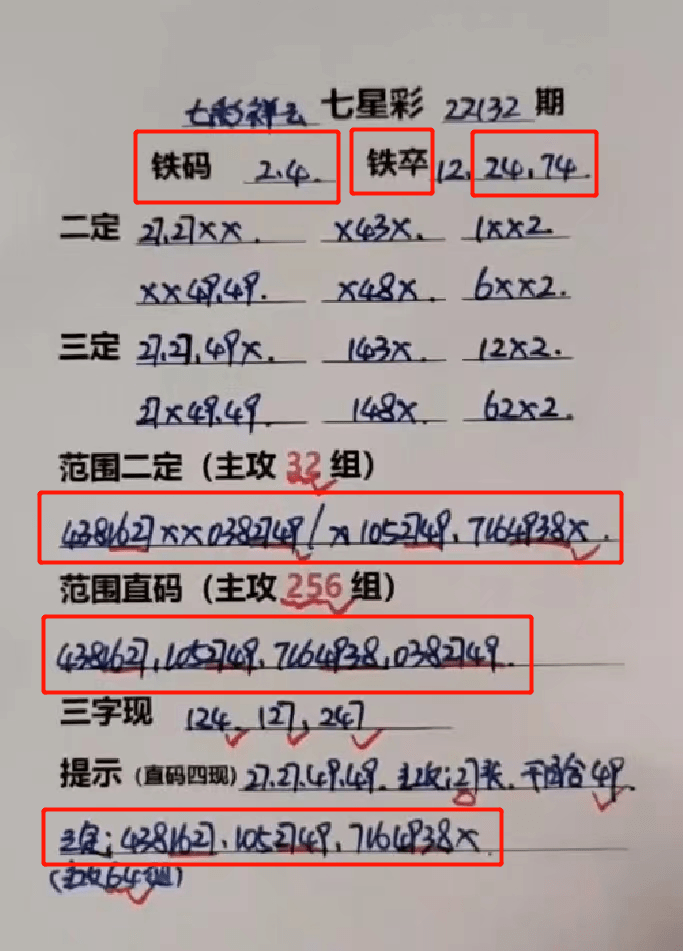 七彩祥云 七星彩 22132 期
铁码 2.4. 铁卒 12. 24. 74.
二定 27.27××. ×43×. 1××2.
××49.49. ×48×. 6××2.
三定 27.27.49×. 143×. 12×2.
27×49.49. 148×. 62×2.
范围二定(主攻32组)
4381627××0382749/×1052749.7164938×.
范围直码(主攻256组)
4381627.1052749.7164938.0382749.
三字现 124. 127. 247
提示(直码四现)27.27.49.49. 主攻:27头. 千百合49.
三定:4381627.1052749.7164938×.
(主攻64组)